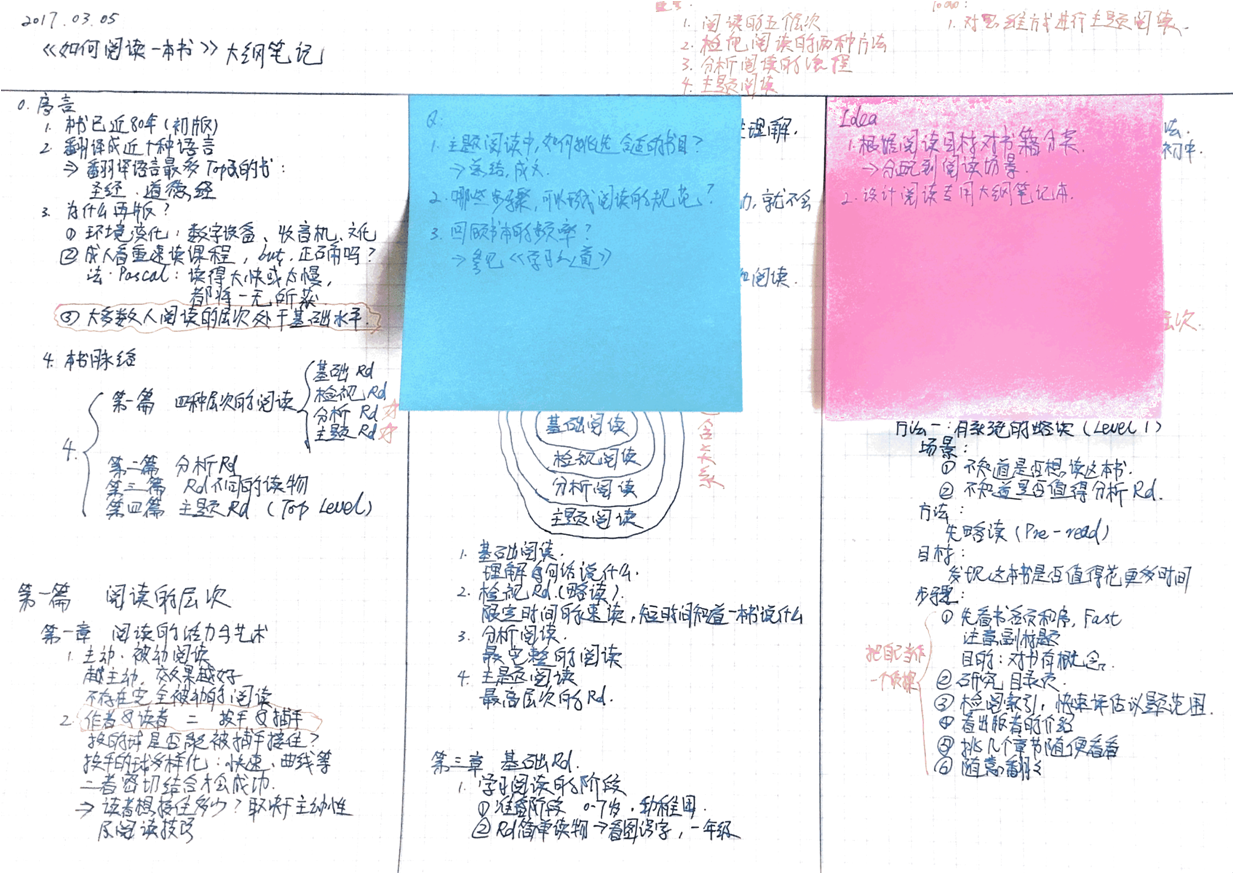 2017.03.05
《如何阅读一本书》大纲笔记
1. 阅读的五个层次
2. 检视阅读的两种方法
3. 分析阅读的流程
4. 主题阅读
1. 对思维方式进行主题阅读.
0. 序言
1. 本书已近80年(初版)
2. 翻译成近十种语言
⇒ 翻译语言最多Top的书:
圣经、道德经
3. 为什么再版?
① 环境变化: 数字设备、收音机、文化
② 成人看重速读课程, but, 正确吗?
法·Pascal: 读得太快或太慢,
都将一无所获
③ 大多数人阅读的层次处于基础水平.
4. 本书脉络
4.
第一篇 四种层次的阅读
基础 Rd
检视 Rd
分析 Rd
主题 Rd
第二篇 分析Rd
第三篇 Rd不同的读物
第四篇 主题Rd (Top Level)
第一篇 阅读的层次
第一章 阅读的活力与艺术
1. 主动·被动阅读
越主动, 效果越好
不存在完全被动的阅读
2. 作者与读者 = 投手与捕手
投的球是否能被捕手接住?
投手的球多样化: 快速、曲线等
二者密切结合才会成功.
⇒ 读者想接住多少? 取决于主动性
及阅读技巧
Q.
1. 主题阅读中, 如何挑选合适的书目?
→ 总结成文.
2. 哪些步骤, 可以形成阅读的规范?
3. 回顾书本的频率?
→ 参见《学习之道》
理解.
力, 就不会
阅读.
基础阅读
检视阅读
分析阅读
主题阅读
1. 基础阅读.
理解每句话说什么.
2. 检视Rd.(略读).
限定时间的来读, 短时间知道一本书说什么
3. 分析阅读.
最完整的阅读
4. 主题阅读
最高层次的Rd.
第三章 基础Rd.
1. 学习阅读的阶段
① 准备阶段 0-7岁, 幼稚园.
② Rd简单读物 → 看图识字, 一年级
Idea
1. 根据阅读目标对书籍分类.
→ 分配到阅读场景.
2. 设计阅读专用大纲笔记本.
法.
初中.
层次.
方法一: 有系统的略读 (Level 1)
场景:
① 不知道是否想读这本书.
② 不知道是否值得分析Rd.
方法:
先略读 (Pre-read)
目标:
发现这本书是否值得花更多时间
步骤:
① 先看书名页和序, Fast
注意副标题
目的: 对书有概念.
② 研究目录页
③ 检阅索引, 快速评估议题范围.
④ 看出版者的介绍
⑤ 挑几个章节随便看看
⑥ 随意翻翻
把自己当作
一个侦探